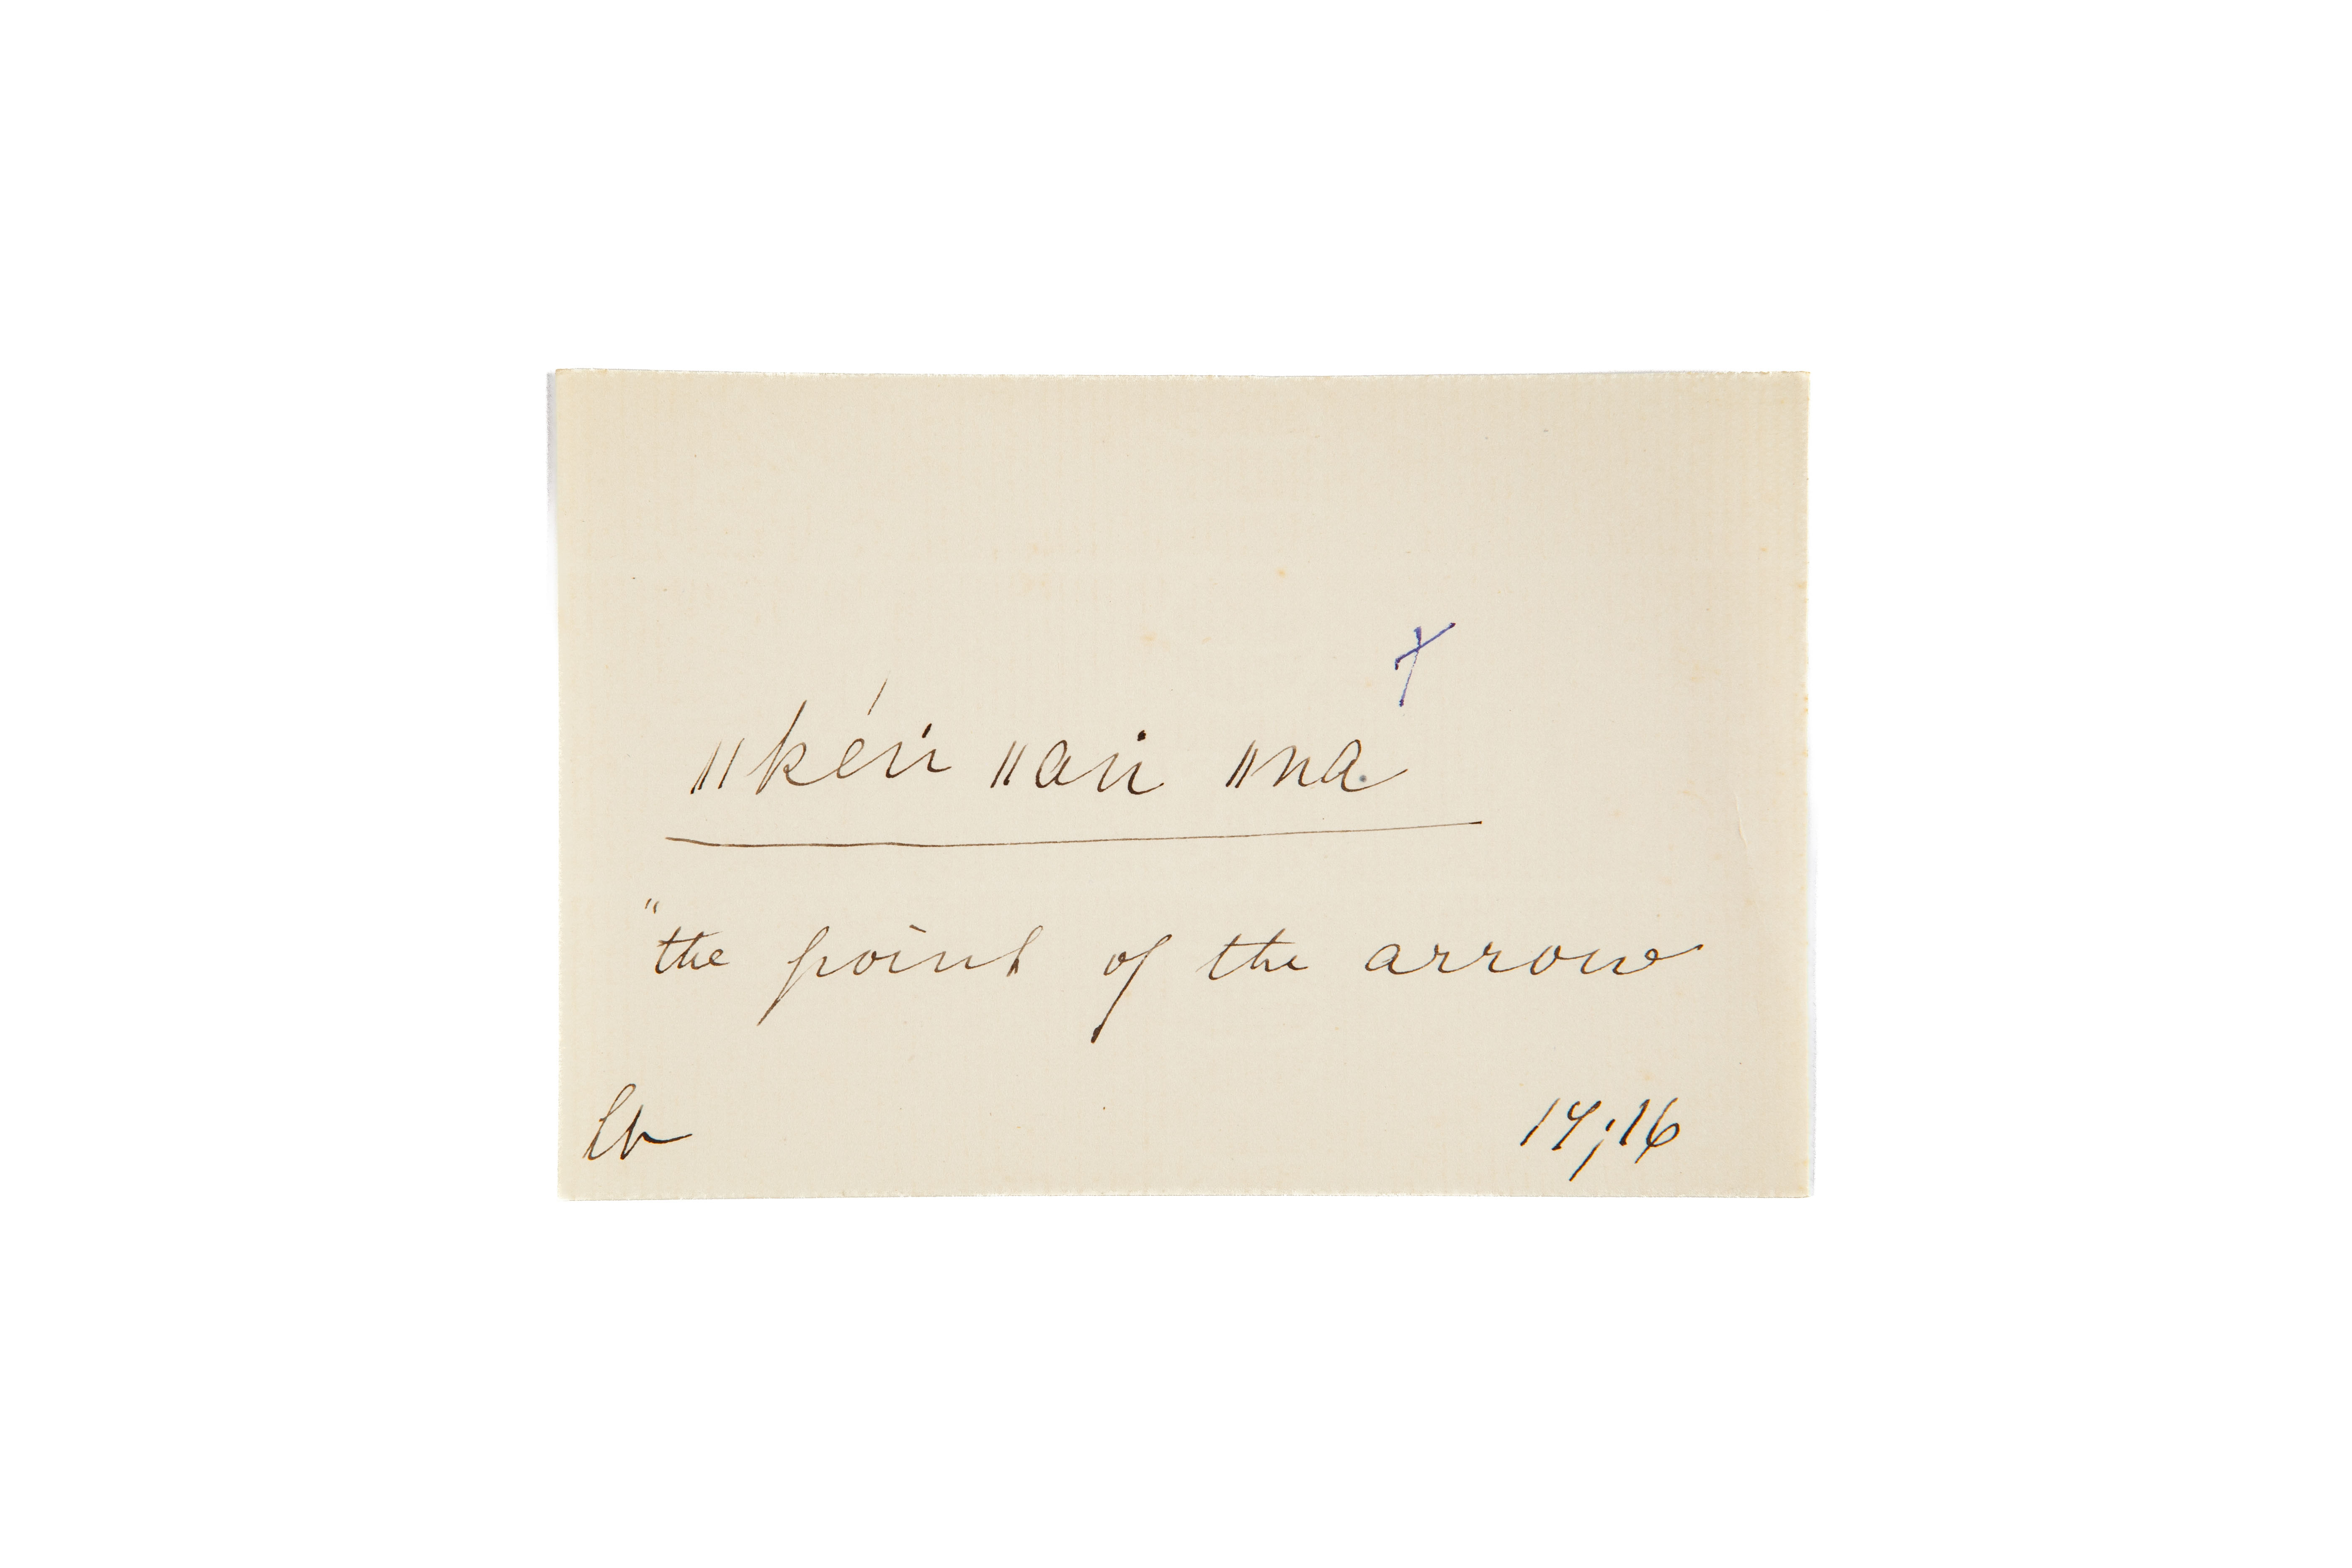 x
ǁkéṅ ǁaṅ ǁna
"the point of the arrow
Lb 14;16